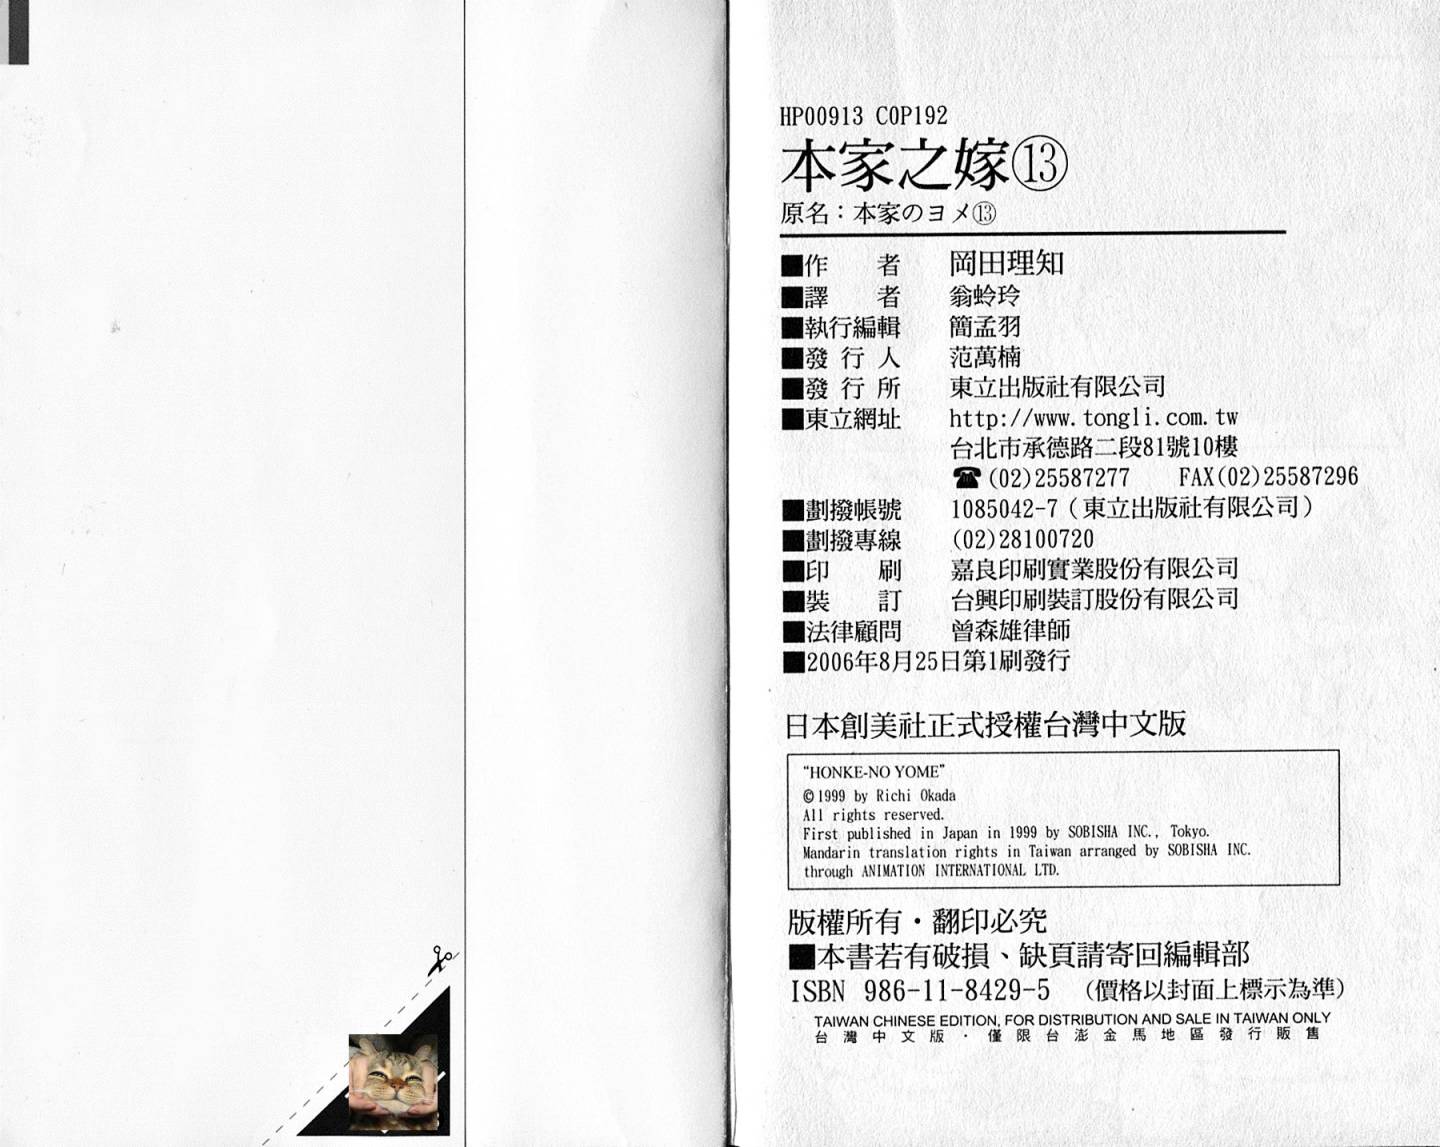 HP00913 COP192
本家之嫁⑬
原名：本家のヨメ⑬
■作　　者　岡田理知
■譯　　者　翁蛉玲
■執行編輯　簡孟羽
■發 行 人　范萬楠
■發 行 所　東立出版社有限公司
■東立網址　http://www.tongli.com.tw
台北市承德路二段81號10樓
☎(02)25587277　FAX(02)25587296
■劃撥帳號　1085042-7（東立出版社有限公司）
■劃撥專線　(02)28100720
■印　　刷　嘉良印刷實業股份有限公司
■裝　　訂　台興印刷裝訂股份有限公司
■法律顧問　曾森雄律師
■2006年8月25日第1刷發行
日本創美社正式授權台灣中文版
“HONKE-NO YOME”
©1999 by Richi Okada
All rights reserved.
First published in Japan in 1999 by SOBISHA INC., Tokyo.
Mandarin translation rights in Taiwan arranged by SOBISHA INC.
through ANIMATION INTERNATIONAL LTD.
版權所有・翻印必究
■本書若有破損、缺頁請寄回編輯部
ISBN 986-11-8429-5　（價格以封面上標示為準）
TAIWAN CHINESE EDITION, FOR DISTRIBUTION AND SALE IN TAIWAN ONLY
台灣中文版・僅限台澎金馬地區發行販售